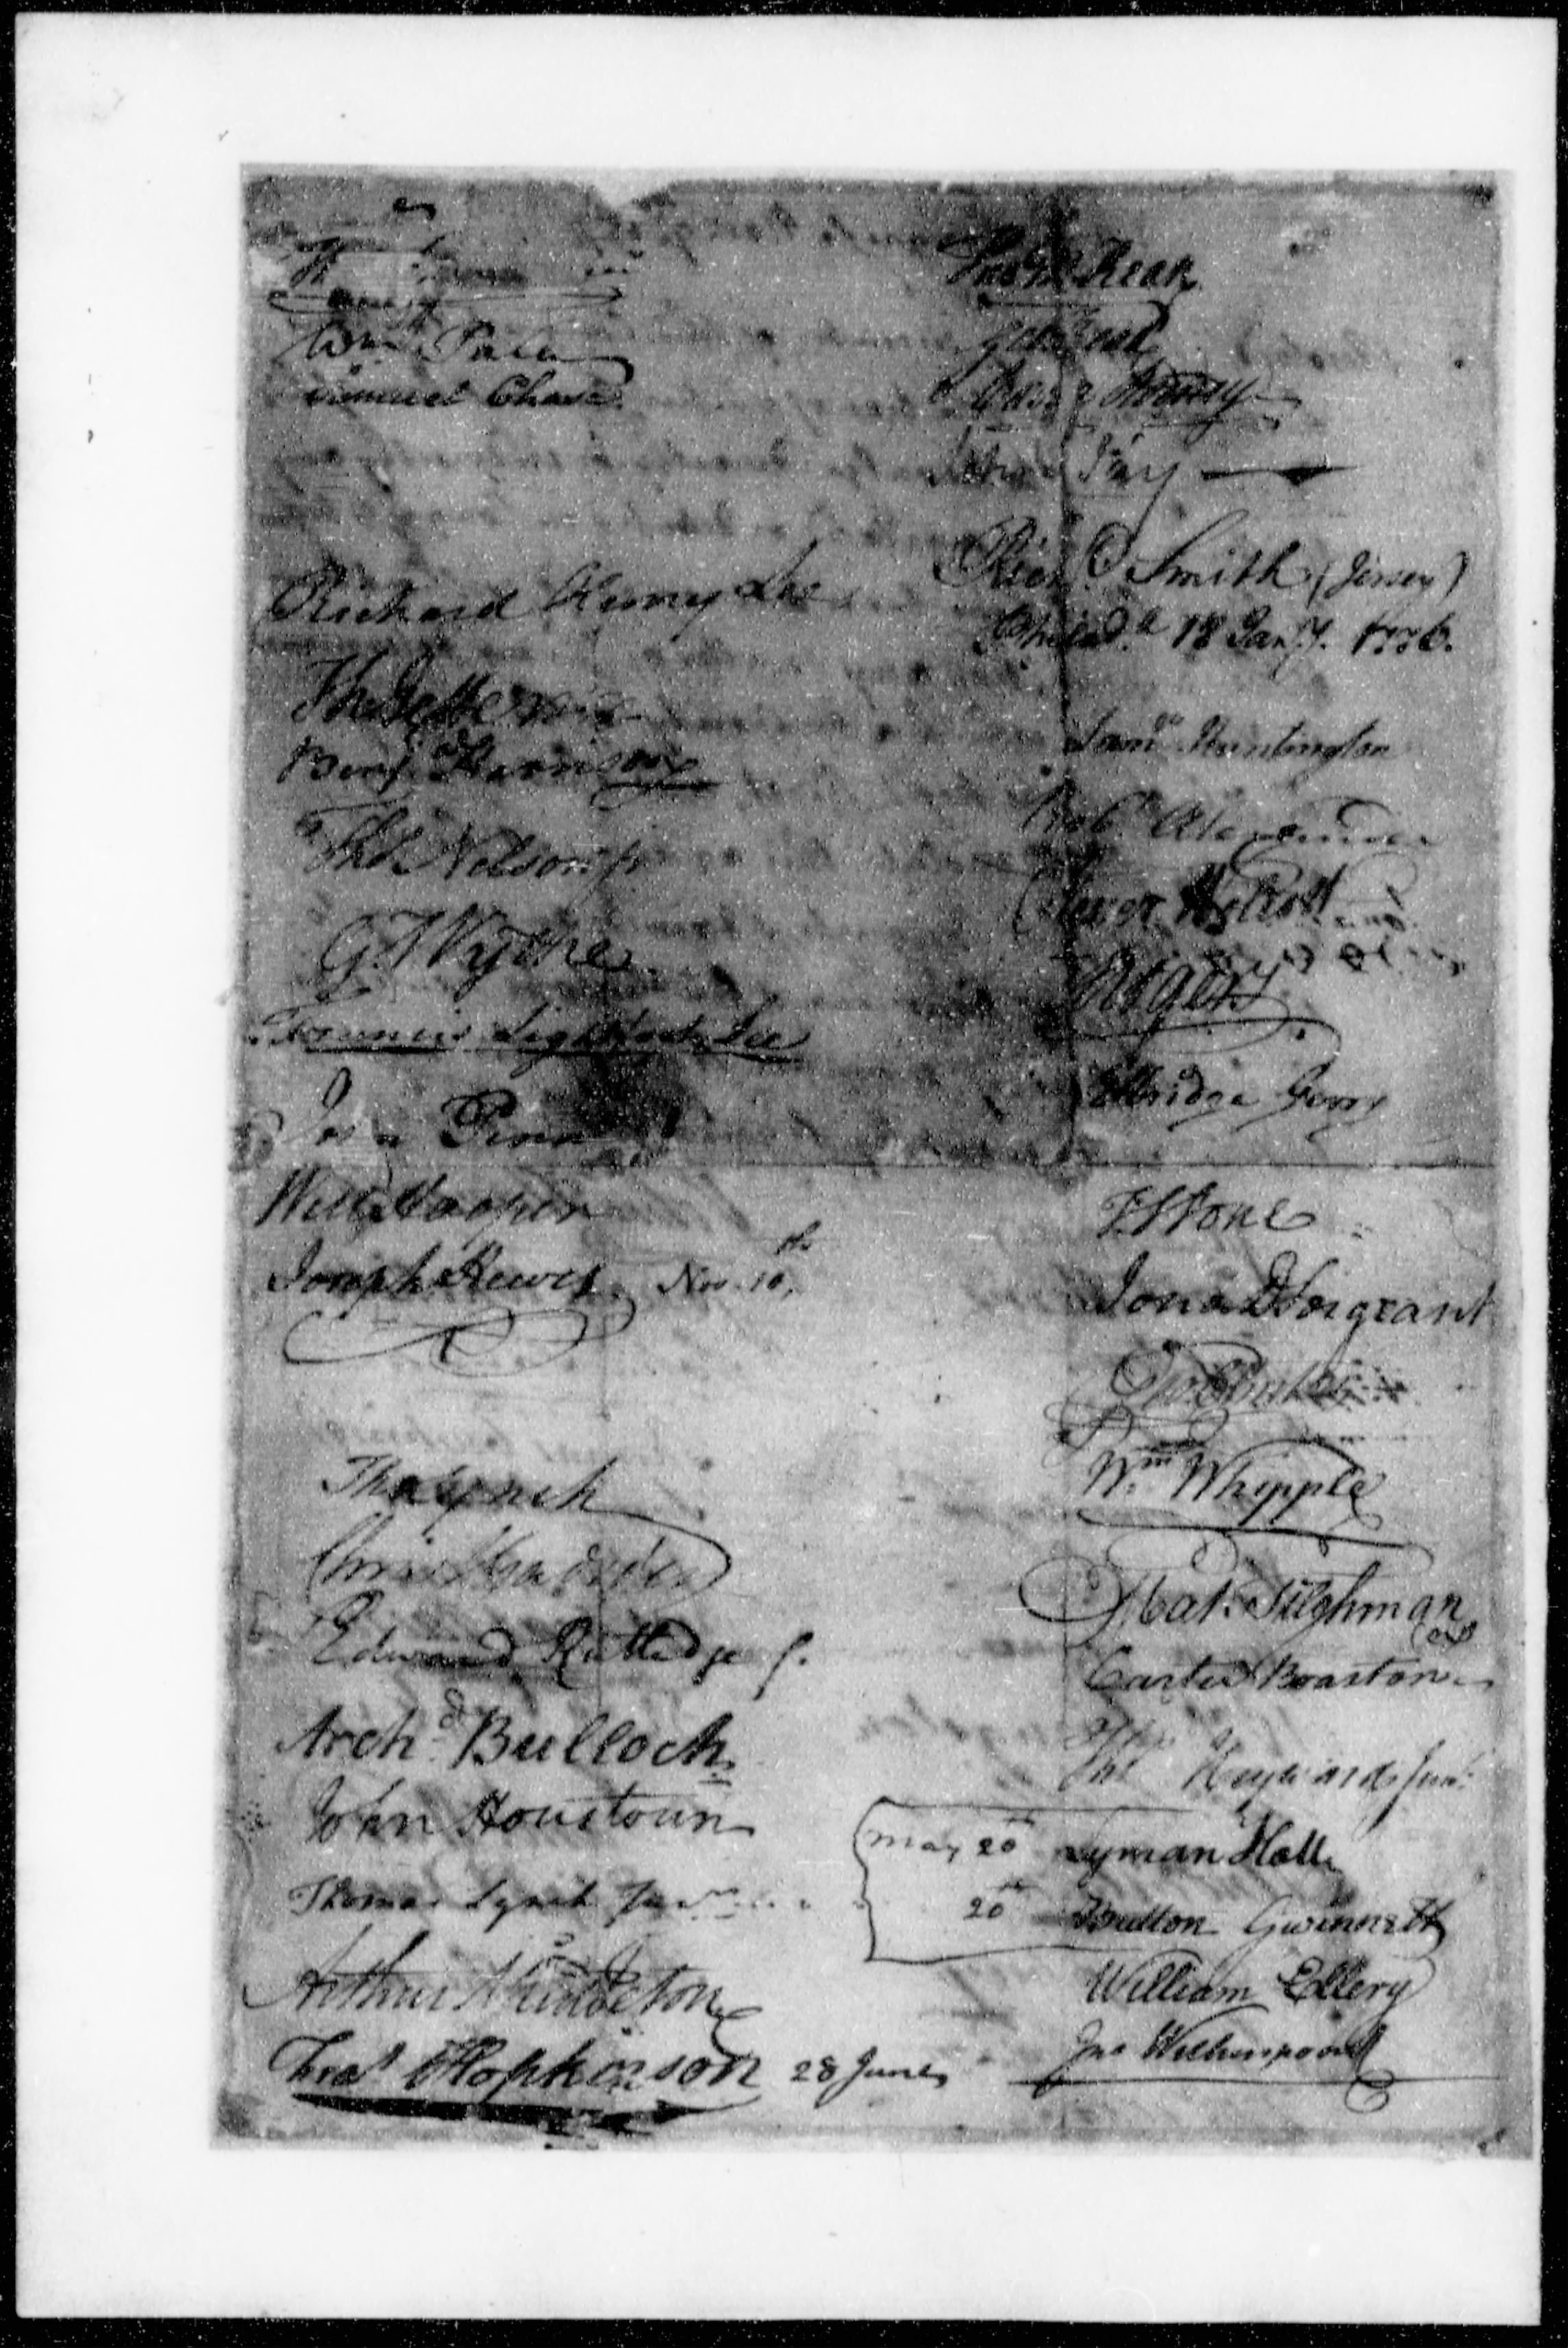 Wm. Paca
Samuel Chase
Richard Henry Lee
Th Jefferson
Benj. Harrison
Thos Nelson jr
G. Wythe
Francis Lightfoot Lee
John Penn
Will Hooper
Joseph Hewes Nov. 10th
Tho Lynch
Chris Gadsden
Edward Rutledge
Archd Bulloch
John Houstoun
Thomas Lynch Junr
Arthur Middleton
Fras Hopkinson 28 June
Tho M Kean
Geo Read
John Jay
Ricd Smith (Jersey)
Philada 18 Jany. 1776.
Saml Huntington
Robt Alexander
Oliver Wolcott
Elbridge Gerry
T. Stone
Jona D Sergeant
Wm Whipple
Mat. Tilghman
Carter Braxton
Thos Heyward Junr
May 20 Lyman Hall
20 Button Gwinnett
William Ellery
Jno Witherspoon